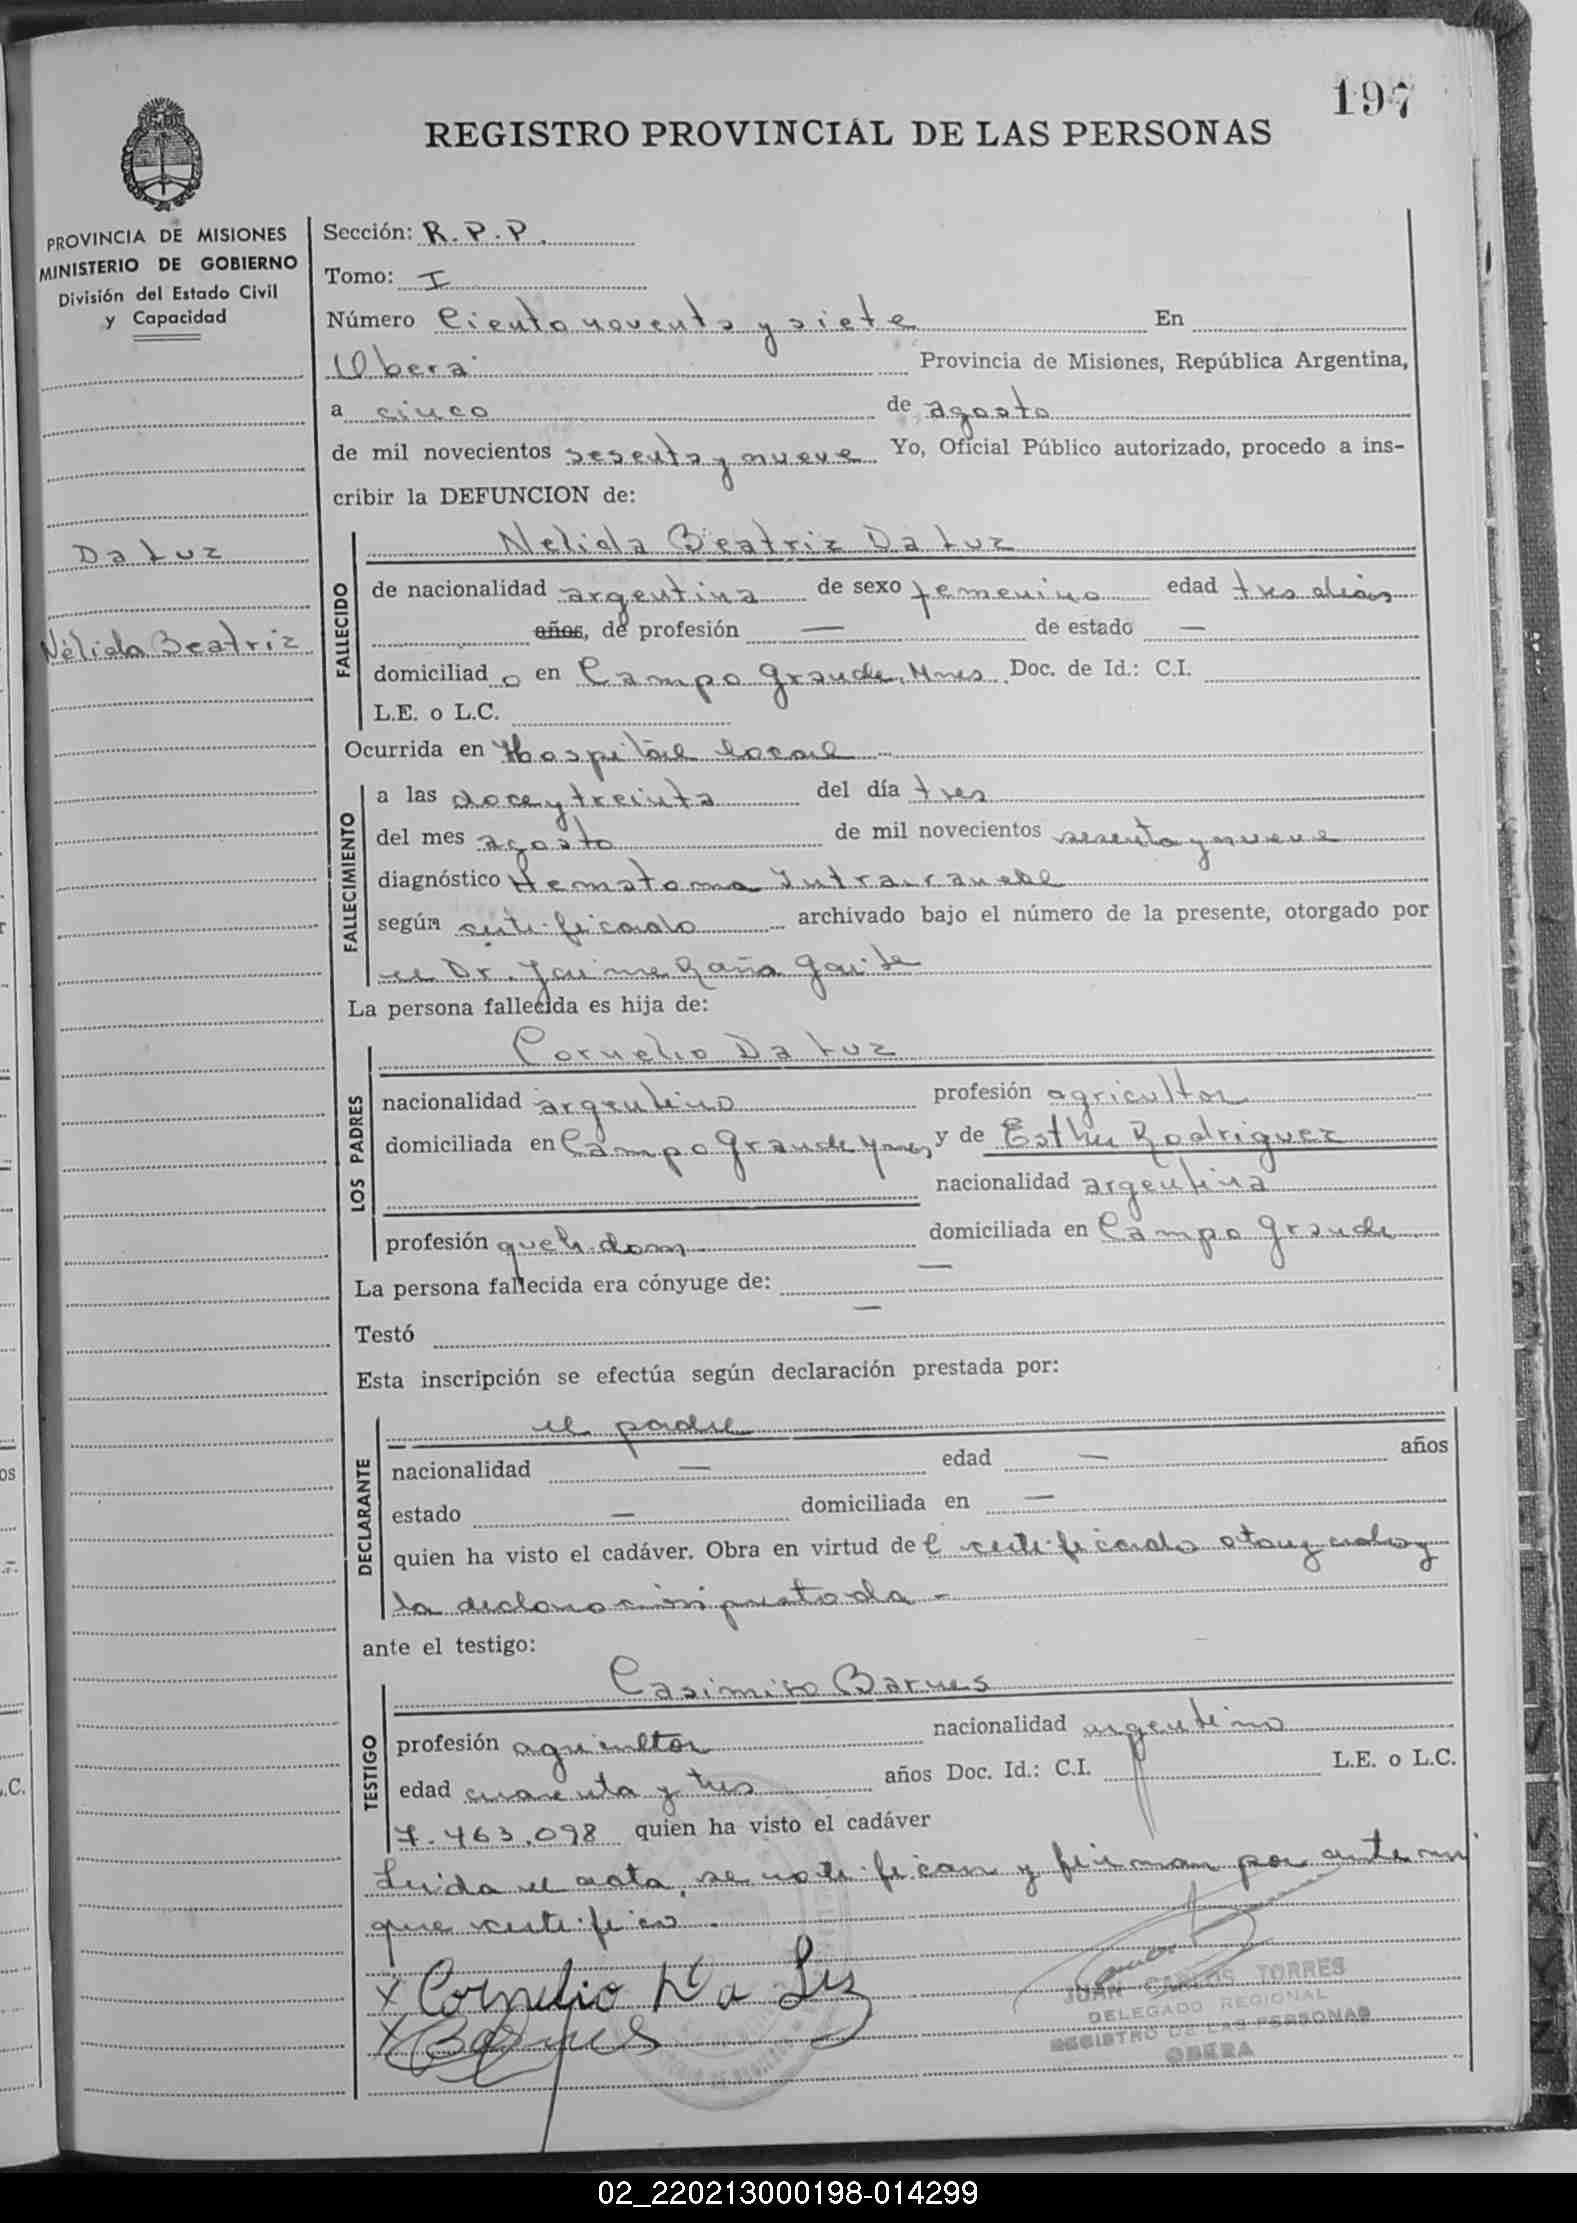 197
REGISTRO PROVINCIAL DE LAS PERSONAS
PROVINCIA DE MISIONES
MINISTERIO DE GOBIERNO
División del Estado Civil
y Capacidad
Da Luz
Nélida Beatriz
Sección: R.P.P.
Tomo: I
Número Ciento noventa y siete En
Oberá Provincia de Misiones, República Argentina,
a cinco de agosto
de mil novecientos sesenta y nueve Yo, Oficial Público autorizado, procedo a ins-
cribir la DEFUNCION de:
FALLECIDO
Nelida Beatriz Da Luz
de nacionalidad argentina de sexo femenino edad tres días
años, de profesión — de estado —
domiciliad o en Campo Grande, Mnes. Doc. de Id.: C.I.
L.E. o L.C.
Ocurrida en Hospital local
FALLECIMIENTO
a las doce y treinta del día tres
del mes agosto de mil novecientos sesenta y nueve
diagnóstico Hematoma Intracraneal
según certificado archivado bajo el número de la presente, otorgado por
el Dr. Jaime
La persona fallecida es hija de:
LOS PADRES
Cornelio Da Luz
nacionalidad argentino profesión agricultor
domiciliada en Campo Grande Mnes y de Esther Rodriguez
nacionalidad argentina
profesión queh. dom domiciliada en Campo Grande
La persona fallecida era cónyuge de: —
Testó —
Esta inscripción se efectúa según declaración prestada por:
DECLARANTE
el padre
nacionalidad — edad — años
estado — domiciliada en —
quien ha visto el cadáver. Obra en virtud del certificado otorgado y
la declaración prestada -
ante el testigo:
TESTIGO
Casimiro Barnes
profesión agricultor nacionalidad argentino
edad cuarenta y tres años Doc. Id.: C.I. L.E. o L.C.
7.463.098 quien ha visto el cadáver
Leída el acta, se notifican y firman por ante mi
que certifico.
x Cornelio Da Luz
x Barnes
JUAN CARLOS TORRES
DELEGADO REGIONAL
REGISTRO DE LAS PERSONAS
OBERA
02_220213000198-014299